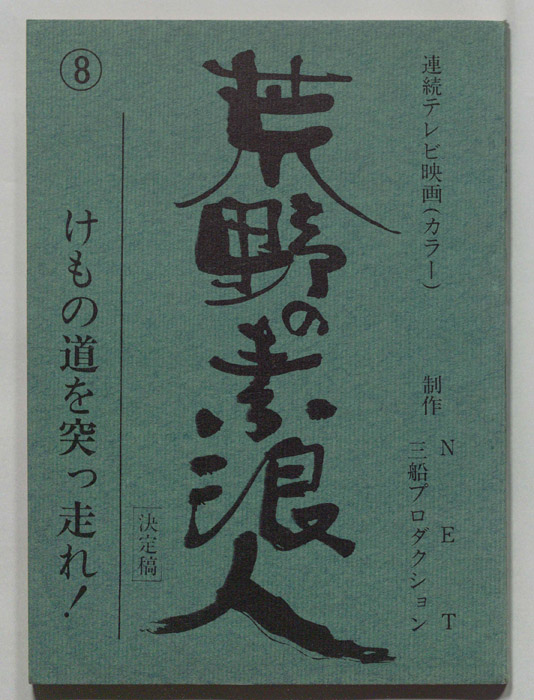 連続テレビ映画(カラー)
制作
NET
三船プロダクション
荒野の素浪人
[決定稿]
⑧
けもの道を突っ走れ!